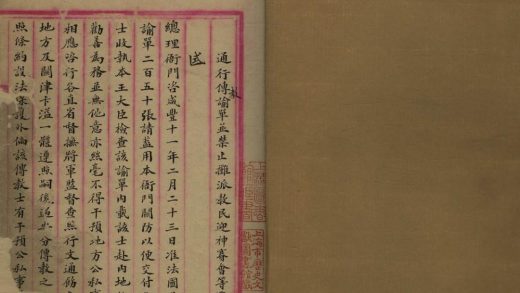 通行傳諭單並禁止攤派教民迎神賽會等
札
咨
總理衙門咨咸豐十一年二月二十三日准法國
諭單二百五十張請蓋用本衙門關防以便交付
士收執本王大臣檢查該諭單內載該士赴內地
勸善為務並無他意亦絲毫不得干預地方公私事
相應咨行各直省督撫將軍監督查照行文通飭
地方及關津卡溢一體遵照嗣後遇無分傳教之
照條約設法保護外倘該傳教士有干預公私事
上海市歷史文
獻圖書館藏